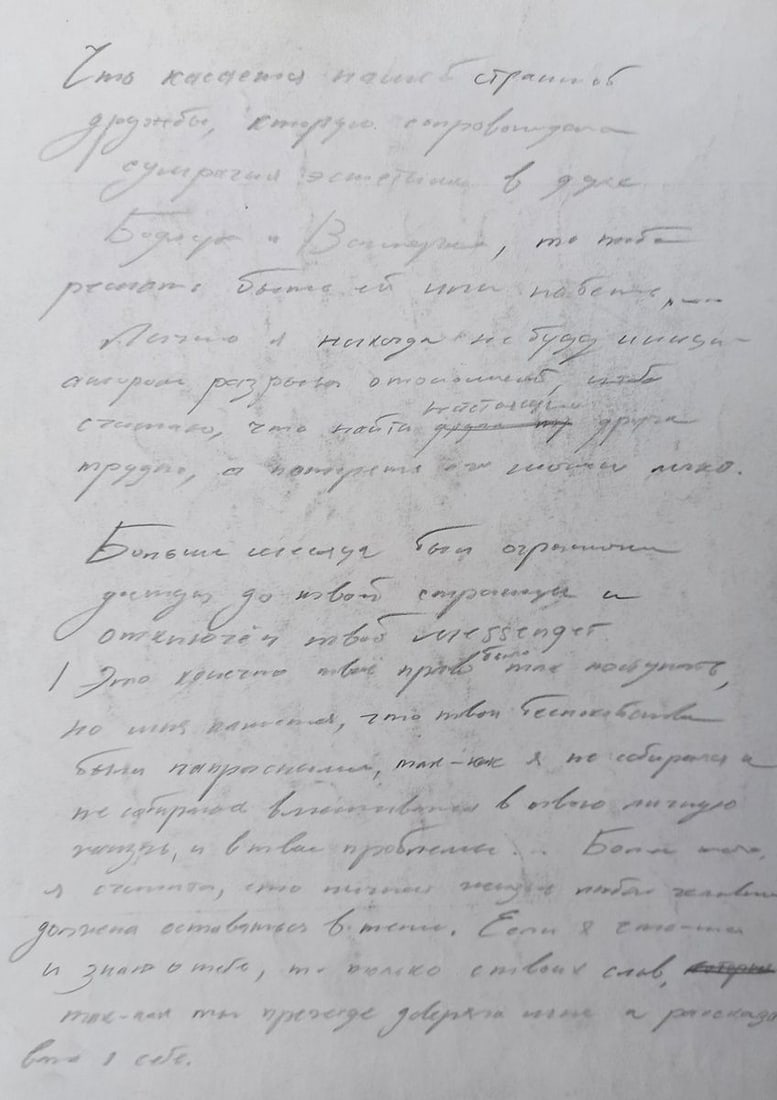 Что касается нашей странной
дружбы, которую сопровождала
сумрачная эстетика в духе
Бодлера и Вагнера, то тебе
решать быть ей или не быть,
Лично я никогда не буду иници-
атором разрыва отношений, ибо
считаю, что найти настоящего друга
трудно, а потерять его легко.
Больше месяца был ограничен
доступ до твоей страницы и
отключён твой messenger.
Это конечно твоё право было так поступать,
но мне кажется, что твои беспокойства
были напрасными, так-как я не собирался и
не собираюсь вмешиваться в твою личную
жизнь, и в твои проблемы... Более того,
я считаю, что личная жизнь любого человека
должна оставаться в тени. Если я что-то
и знаю о тебе, то только с твоих слов,
так-как ты прежде доверяла мне и рассказы
вала о себе.